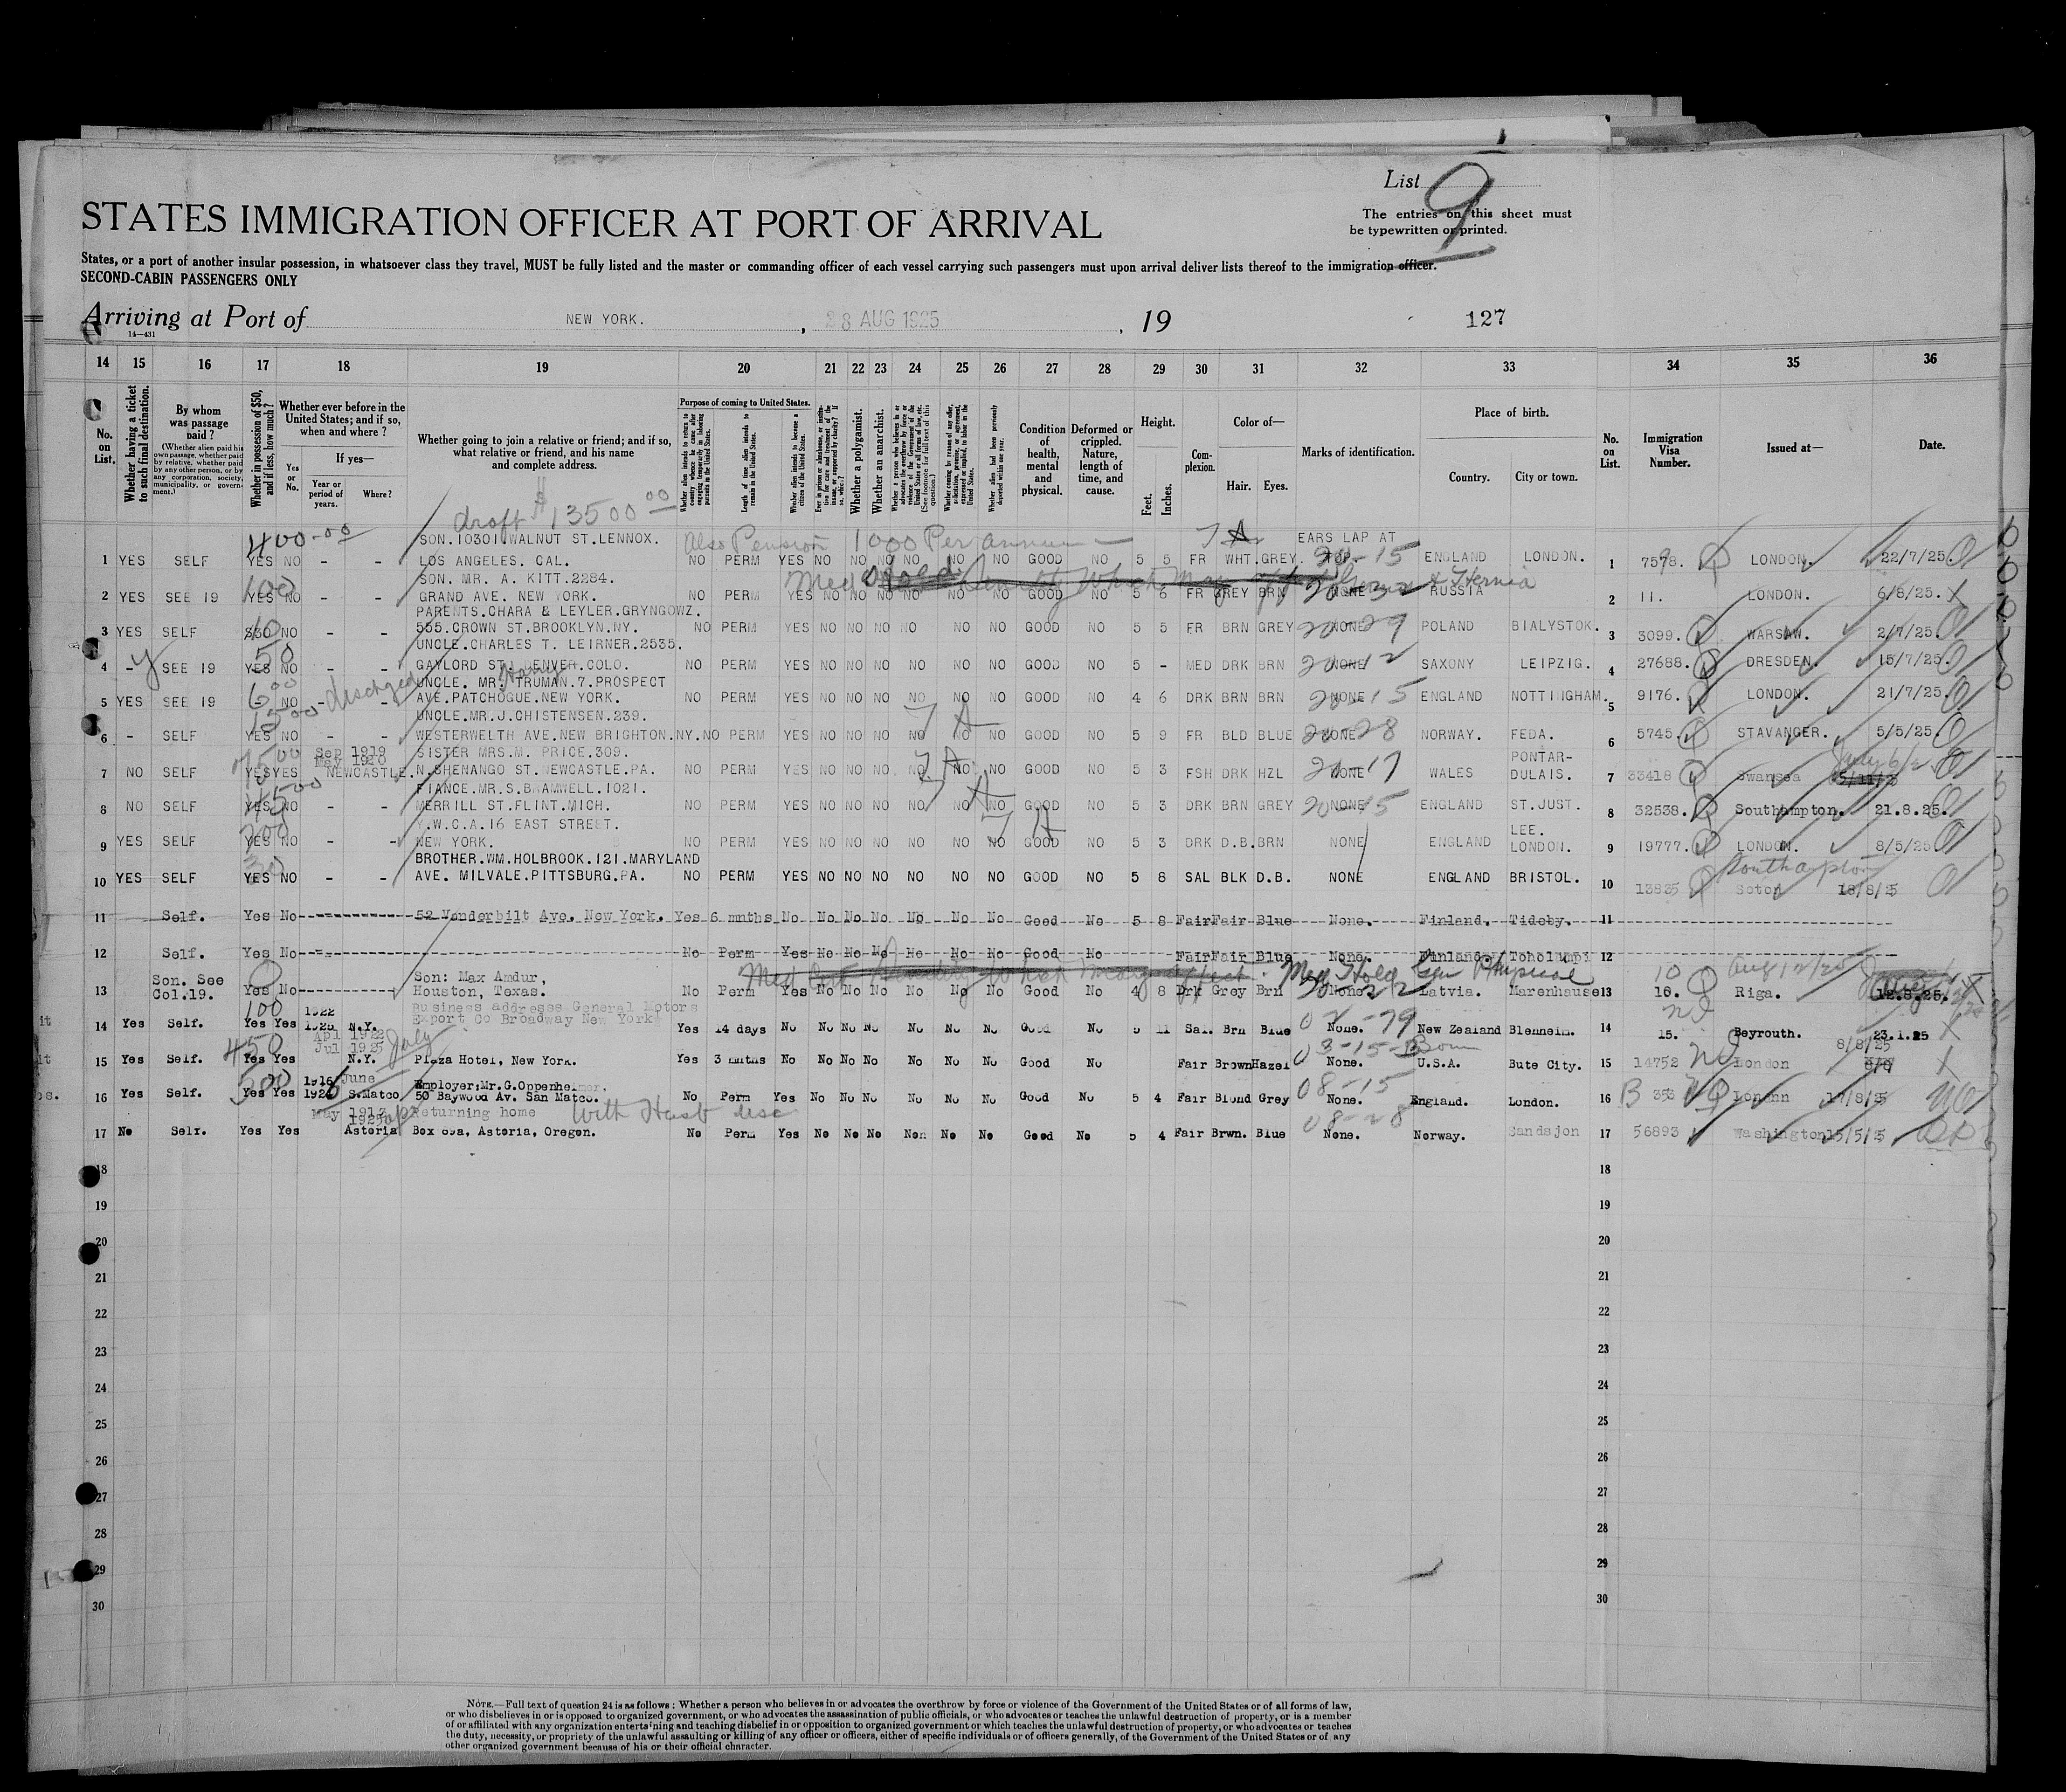 List 9
STATES IMMIGRATION OFFICER AT PORT OF ARRIVAL
The entries on this sheet must
be typewritten or printed.
States, or a port of another insular possession, in whatsoever class they travel, MUST be fully listed and the master or commanding officer of each vessel carrying such passengers must upon arrival deliver lists thereof to the immigration officer.
SECOND-CABIN PASSENGERS ONLY
Arriving at Port of NEW YORK. , 28 AUG 1925 , 19 127
14—431
14 15 16 17 18 19 20 21 22 23 24 25 26 27 28 29 30 31 32 33 34 35 36
No. on List.
Whether having a ticket to such final destination.
By whom was passage paid?
(Whether alien paid his own passage, whether paid by relative, whether paid by any other person, or by any corporation, society, municipality, or government.)
Whether in possession of $50, and if less, how much?
Whether ever before in the United States; and if so, when and where?
Yes or No.
If yes—
Year or period of years.
Where?
Whether going to join a relative or friend; and if so, what relative or friend, and his name and complete address.
Purpose of coming to United States.
Whether alien intends to return to country whence he came after engaging temporarily in laboring pursuits in the United States.
Length of time alien intends to remain in the United States.
Whether alien intends to become a citizen of the United States.
Whether a polygamist.
Whether an anarchist.
Condition of health, mental and physical.
Deformed or crippled. Nature, length of time, and cause.
Height.
Feet. Inches.
Complexion.
Color of—
Hair. Eyes.
Marks of identification.
Place of birth.
Country. City or town.
No. on List.
Immigration Visa Number.
Issued at—
Date.
draft $13500 00
400-00 SON.10301 WALNUT ST.LENNOX. Also Pension 1000 Per annum — EARS LAP AT
1 YES SELF YES NO - - LOS ANGELES. CAL. NO PERM YES NO NO NO NO NO NO GOOD NO 5 5 FR WHT.GREY. 20-15 ENGLAND LONDON. 1 7578. LONDON. 22/7/25.
100 SON. MR. A. KITT.2284.
2 YES SEE 19 YES NO - - GRAND AVE. NEW YORK. NO PERM YES NO NO NO NO NO NO GOOD NO 5 6 FR GREY BRN NONE RUSSIA 2 11. LONDON. 6/8/25.
PARENTS.CHARA & LEYLER.GRYNGOWZ.
3 YES SELF NO - - 555.CROWN ST.BROOKLYN.NY. NO PERM YES NO NO NO NO NO NO GOOD NO 5 5 FR BRN GREY NONE 20-29 POLAND BIALYSTOK. 3 3099. WARSAW. 2/7/25.
50 UNCLE.CHARLES T. LEIRNER.2535.
4 - SEE 19 YES NO - - GAYLORD ST. DENVER.COLO. NO PERM YES NO NO NO NO NO NO GOOD NO 5 - MED DRK BRN NONE 20-12 SAXONY LEIPZIG. 4 27688. DRESDEN. 15/7/25.
dischged UNCLE. MR. Harry TRUMAN.7.PROSPECT
5 YES SEE 19 NO - - AVE.PATCHOGUE.NEW YORK. NO PERM YES NO NO NO NO NO NO GOOD NO 4 6 DRK BRN BRN NONE 20-15 ENGLAND NOTTINGHAM. 5 9176. LONDON. 21/7/25.
UNCLE.MR.J.CHISTENSEN.239.
6 - SELF YES NO - - WESTERWELTH AVE.NEW BRIGHTON.NY. NO PERM YES NO NO NO NO NO NO GOOD NO 5 9 FR BLD BLUE NONE 20-28 NORWAY. FEDA. 6 5745. STAVANGER. 5/5/25.
Sep 1919 SISTER MRS.M. PRICE.309. PONTAR-
7 NO SELF YES YES May 1920 NEWCASTLE. N.SHENANGO ST.NEWCASTLE.PA. NO PERM YES NO NO NO NO NO NO GOOD NO 5 3 FSH DRK HZL NONE 20-17 WALES DULAIS. 7 33418 Swansea
FIANCE.MR.S.BRAMWELL.1021.
8 NO SELF YES NO - - MERRILL ST.FLINT.MICH. NO PERM YES NO NO NO NO NO NO GOOD NO 5 3 DRK BRN GREY NONE 20-15 ENGLAND ST.JUST. 8 32538. Southampton. 21.8.25.
200 Y.W.C.A.16 EAST STREET. LEE.
9 YES SELF YES NO - - NEW YORK. NO PERM YES NO NO NO NO NO NO GOOD NO 5 3 DRK D.B.BRN NONE ENGLAND LONDON. 9 19777. LONDON. 8/5/25
30 BROTHER.WM.HOLBROOK.121.MARYLAND Southampton
10 YES SELF YES NO - - AVE. MILVALE.PITTSBURG.PA. NO PERM YES NO NO NO NO NO NO GOOD NO 5 8 SAL BLK D.B. NONE ENGLAND BRISTOL. 10 13835 Soton 18/8/25
11 Self. Yes No 52 Vanderbilt Ave. New York. Yes 6 mnths No No No No No No No Good No 5 8 Fair Fair Blue None. Finland. Tideby. 11
12 Self. Yes No No Perm Yes No No No No No No Good No Fair Fair Blue None. Finland. 12
Son. See Son: Max Amdur, Med Hold Aug 12/25
13 Col.19. Yes No Houston, Texas. No Perm Yes No No No No No No Good No 4 8 Drk Grey Brn None. Latvia. Marenhause 13 10. Riga. 12.8.25.
100 1922 Business addresses General Motors
14 Yes Self. Yes Yes 1925 N.Y. Export Co Broadway New York Yes 14 days No No No No No No No Good No 5 11 Sal. Brn Blue None. New Zealand Blenheim. 14 15. Beyrouth. 23.1.25
450 Apl 1922 Jul 1925 July 03-15- Born 8/8/25
15 Yes Self. Yes Yes N.Y. Plaza Hotel, New York. Yes 3 mnths No No No No No No No Good No Fair Brown Hazel None. U.S.A. Bute City. 15 14752 London
500 1916 June Employer:Mr.G.Oppenheimer. 08-15
16 Yes Self. Yes Yes S.Matco 50 Baywood Av. San Matco. No Perm Yes No No No No No No Good No 5 4 Fair Blond Grey None. England. London. 16 B 353 London 17/8/25
May 1913 Returning home With Husb disc 08-28
17 No Self. Yes Yes Astoria Box 69a, Astoria, Oregon. No Perm Yes No No No Non No No Good No 5 4 Fair Brwn. Blue None. Norway. Sandsjon 17 56893 Washington 15/5/25
18 18
19 19
20 20
21 21
22 22
23 23
24 24
25 25
26 26
27 27
28 28
29 29
30 30
NOTE.—Full text of question 24 is as follows: Whether a person who believes in or advocates the overthrow by force or violence of the Government of the United States or of all forms of law,
or who disbelieves in or is opposed to organized government, or who advocates the assassination of public officials, or who advocates or teaches the unlawful destruction of property, or is a member
of or affiliated with any organization entertaining and teaching disbelief in or opposition to organized government or which teaches the unlawful destruction of property, or who advocates or teaches
the duty, necessity, or propriety of the unlawful assaulting or killing of any officer or officers, either of specific individuals or of officers generally, of the Government of the United States or of any
other organized government because of his or their official character.